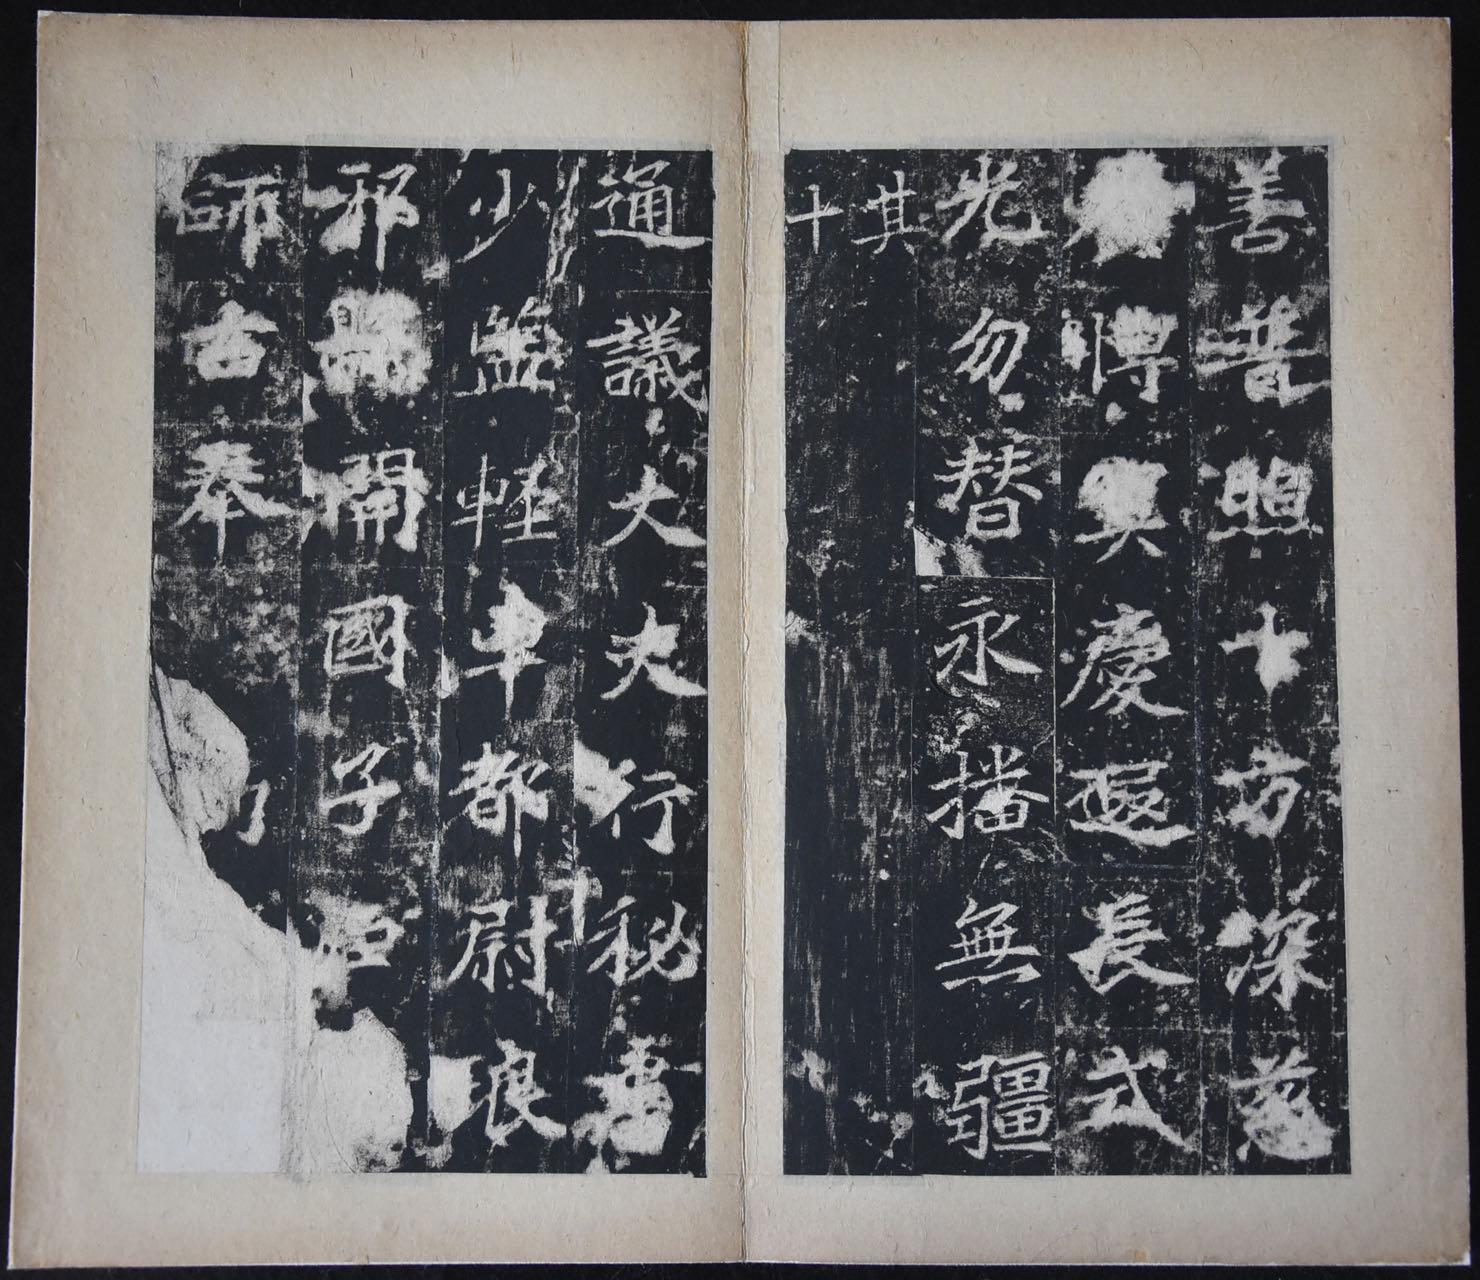 善普照十方深慈
博冥慶遐長式
光勿替永播無疆
其十
通議大夫行秘書
少監輕車都尉琅
邪縣開國子顏
師古奉